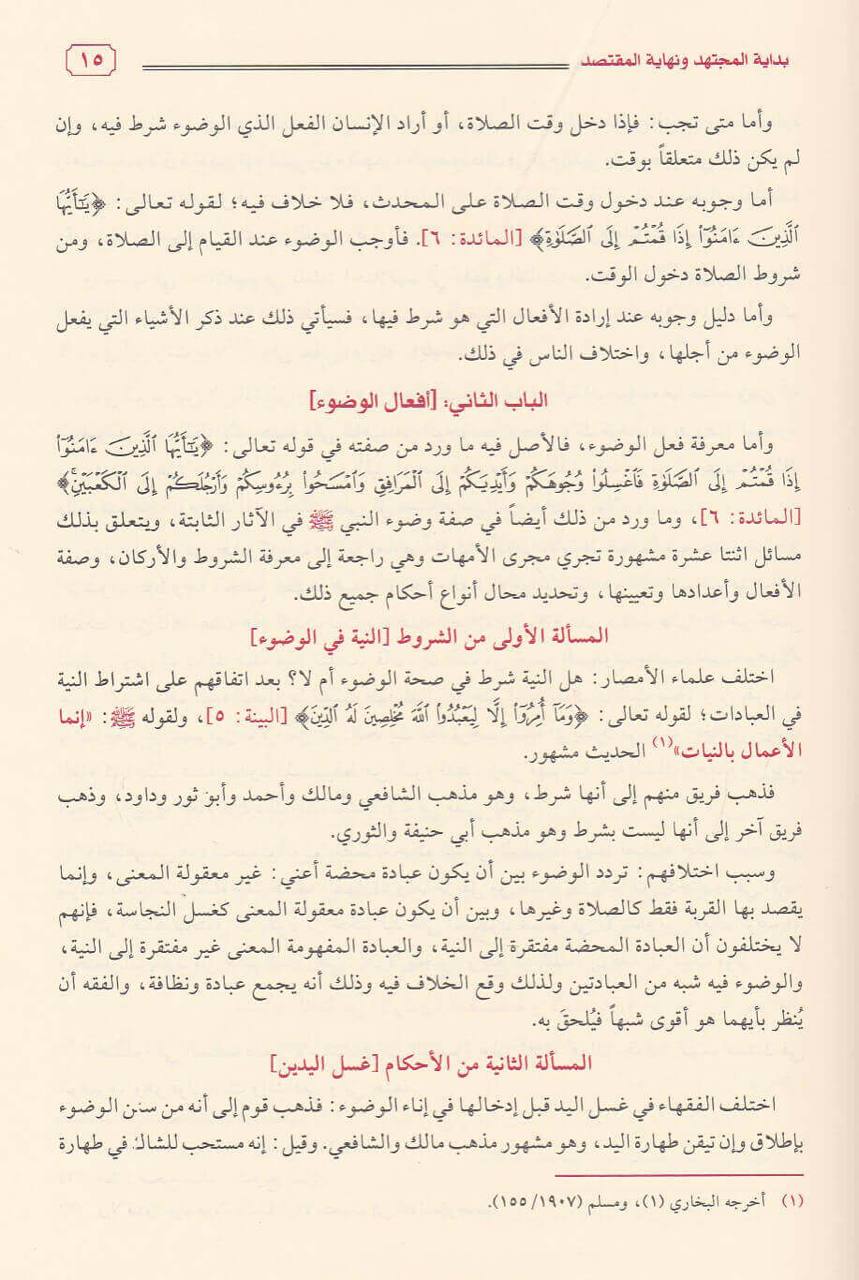 بداية المجتهد ونهاية المقتصد
١٥
وأما متى تجب: فإذا دخل وقت الصلاة، أو أراد الإنسان الفعل الذي الوضوء شرط فيه، وإن
لم يكن ذلك متعلقاً بوقت.
أما وجوبه عند دخول وقت الصلاة على المحدث، فلا خلاف فيه؛ لقوله تعالى: ﴿يَٰٓأَيُّهَا
ٱلَّذِينَ ءَامَنُوٓاْ إِذَا قُمۡتُمۡ إِلَى ٱلصَّلَوٰةِ﴾ [المائدة: ٦]. فأوجب الوضوء عند القيام إلى الصلاة، ومن
شروط الصلاة دخول الوقت.
وأما دليل وجوبه عند إرادة الأفعال التي هو شرط فيها، فسيأتي ذلك عند ذكر الأشياء التي يفعل
الوضوء من أجلها، واختلاف الناس في ذلك.
الباب الثاني: [أفعال الوضوء]
وأما معرفة فعل الوضوء، فالأصل فيه ما ورد من صفته في قوله تعالى: ﴿يَٰٓأَيُّهَا ٱلَّذِينَ ءَامَنُوٓاْ
إِذَا قُمۡتُمۡ إِلَى ٱلصَّلَوٰةِ فَٱغۡسِلُواْ وُجُوهَكُمۡ وَأَيۡدِيَكُمۡ إِلَى ٱلۡمَرَافِقِ وَٱمۡسَحُواْ بِرُءُوسِكُمۡ وَأَرۡجُلَكُمۡ إِلَى ٱلۡكَعۡبَيۡنِۚ﴾
[المائدة: ٦]، وما ورد من ذلك أيضاً في صفة وضوء النبي ﷺ في الآثار الثابتة، ويتعلق بذلك
مسائل اثنتا عشرة مشهورة تجري مجرى الأمهات وهي راجعة إلى معرفة الشروط والأركان، وصفة
الأفعال وأعدادها وتعيينها، وتحديد محال أنواع أحكام جميع ذلك.
المسألة الأولى من الشروط [النية في الوضوء]
اختلف علماء الأمصار: هل النية شرط في صحة الوضوء أم لا؟ بعد اتفاقهم على اشتراط النية
في العبادات؛ لقوله تعالى: ﴿وَمَآ أُمِرُوٓاْ إِلَّا لِيَعۡبُدُواْ ٱللَّهَ مُخۡلِصِينَ لَهُ ٱلدِّينَ﴾ [البينة: ٥]، ولقوله ﷺ: «إنما
الأعمال بالنيات»(١) الحديث مشهور.
فذهب فريق منهم إلى أنها شرط، وهو مذهب الشافعي ومالك وأحمد وأبو ثور وداود، وذهب
فريق آخر إلى أنها ليست بشرط وهو مذهب أبي حنيفة والثوري.
وسبب اختلافهم: تردد الوضوء بين أن يكون عبادة محضة أعني: غير معقولة المعنى، وإنما
يقصد بها القربة فقط كالصلاة وغيرها، وبين أن يكون عبادة معقولة المعنى كغسل النجاسة، فإنهم
لا يختلفون أن العبادة المحضة مفتقرة إلى النية، والعبادة المفهومة المعنى غير مفتقرة إلى النية،
والوضوء فيه شبه من العبادتين ولذلك وقع الخلاف فيه وذلك أنه يجمع عبادة ونظافة، والفقه أن
يُنظر بأيهما هو أقوى شبهاً فيُلحقَ به.
المسألة الثانية من الأحكام [غسل اليدين]
اختلف الفقهاء في غسل اليد قبل إدخالها في إناء الوضوء: فذهب قوم إلى أنه من سنن الوضوء
بإطلاق وإن تيقن طهارة اليد، وهو مشهور مذهب مالك والشافعي. وقيل: إنه مستحب للشاك في طهارة
(١) أخرجه البخاري (١)، ومسلم (١٥٥/١٩٠٧).